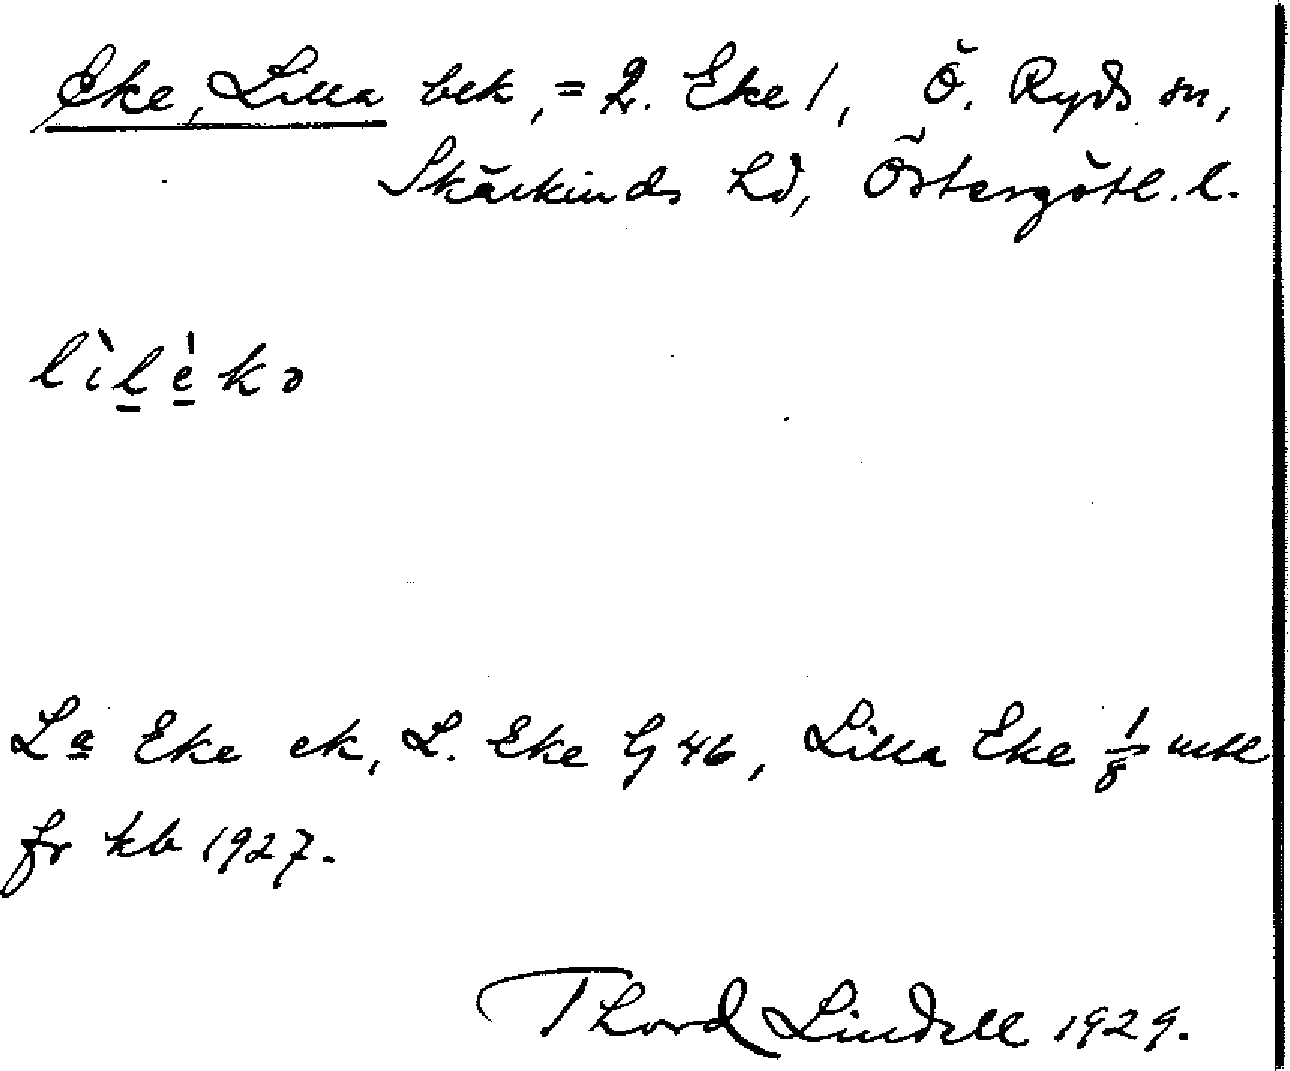 Eke, Lilla bek, = 2. Eke 1, Ö. Ryds sn,
Skärkinds hd, Östergötl. l.
lìlèkə
La Eke ek, L. Eke G 46, Lilla Eke 1/8 mtl
fr kb 1927.
Thord Lindell 1929.